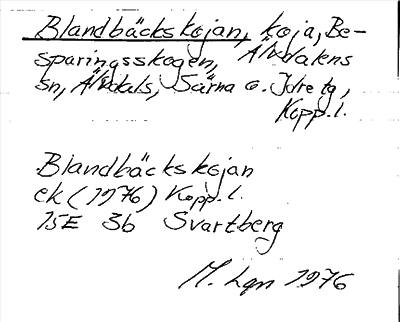 Blandbäckskojan, koja, Be-
sparingsskogen, Älvdalens
sn, Älvdals, Särna o. Idre tg,
Kopp. l.
Blandbäckskojan
ek (1976) Kopp. l.
15E 3b Svartberg
M. Lgn 1976